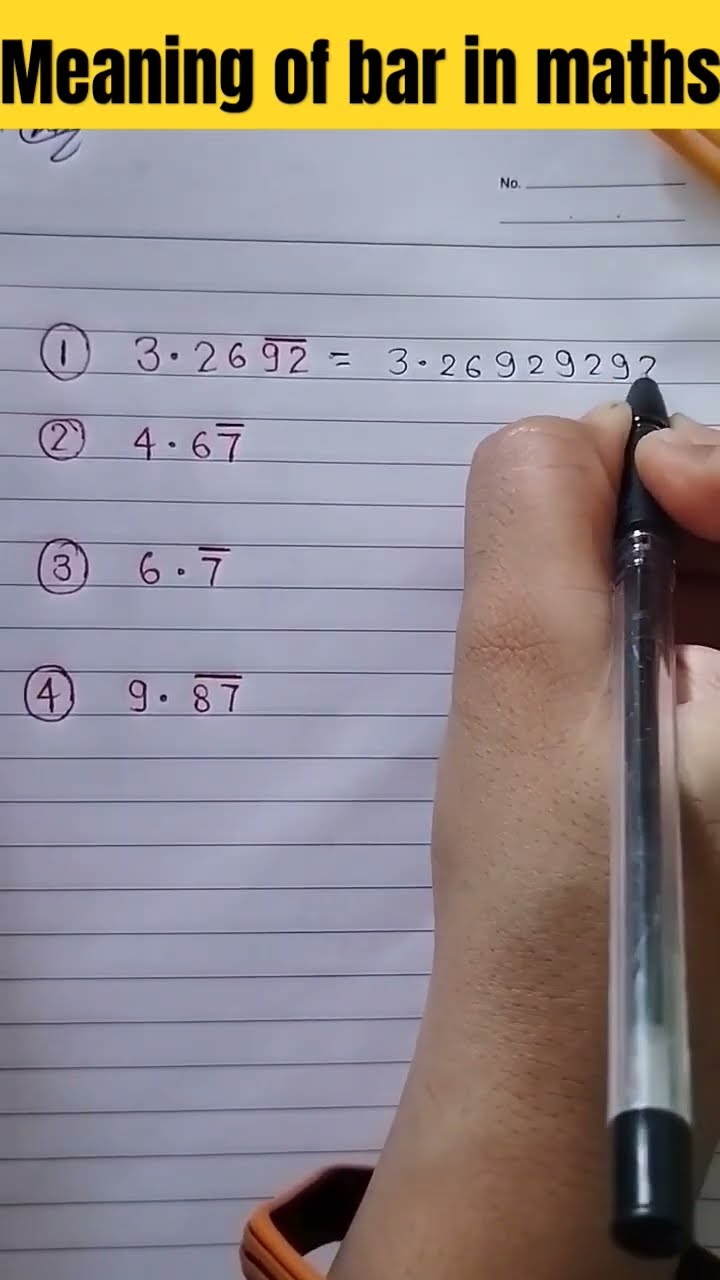 Meaning of bar in maths
No.
① 3.269̅2̅ = 3.26929292
② 4.67̅
③ 6.7̅
④ 9.8̅7̅